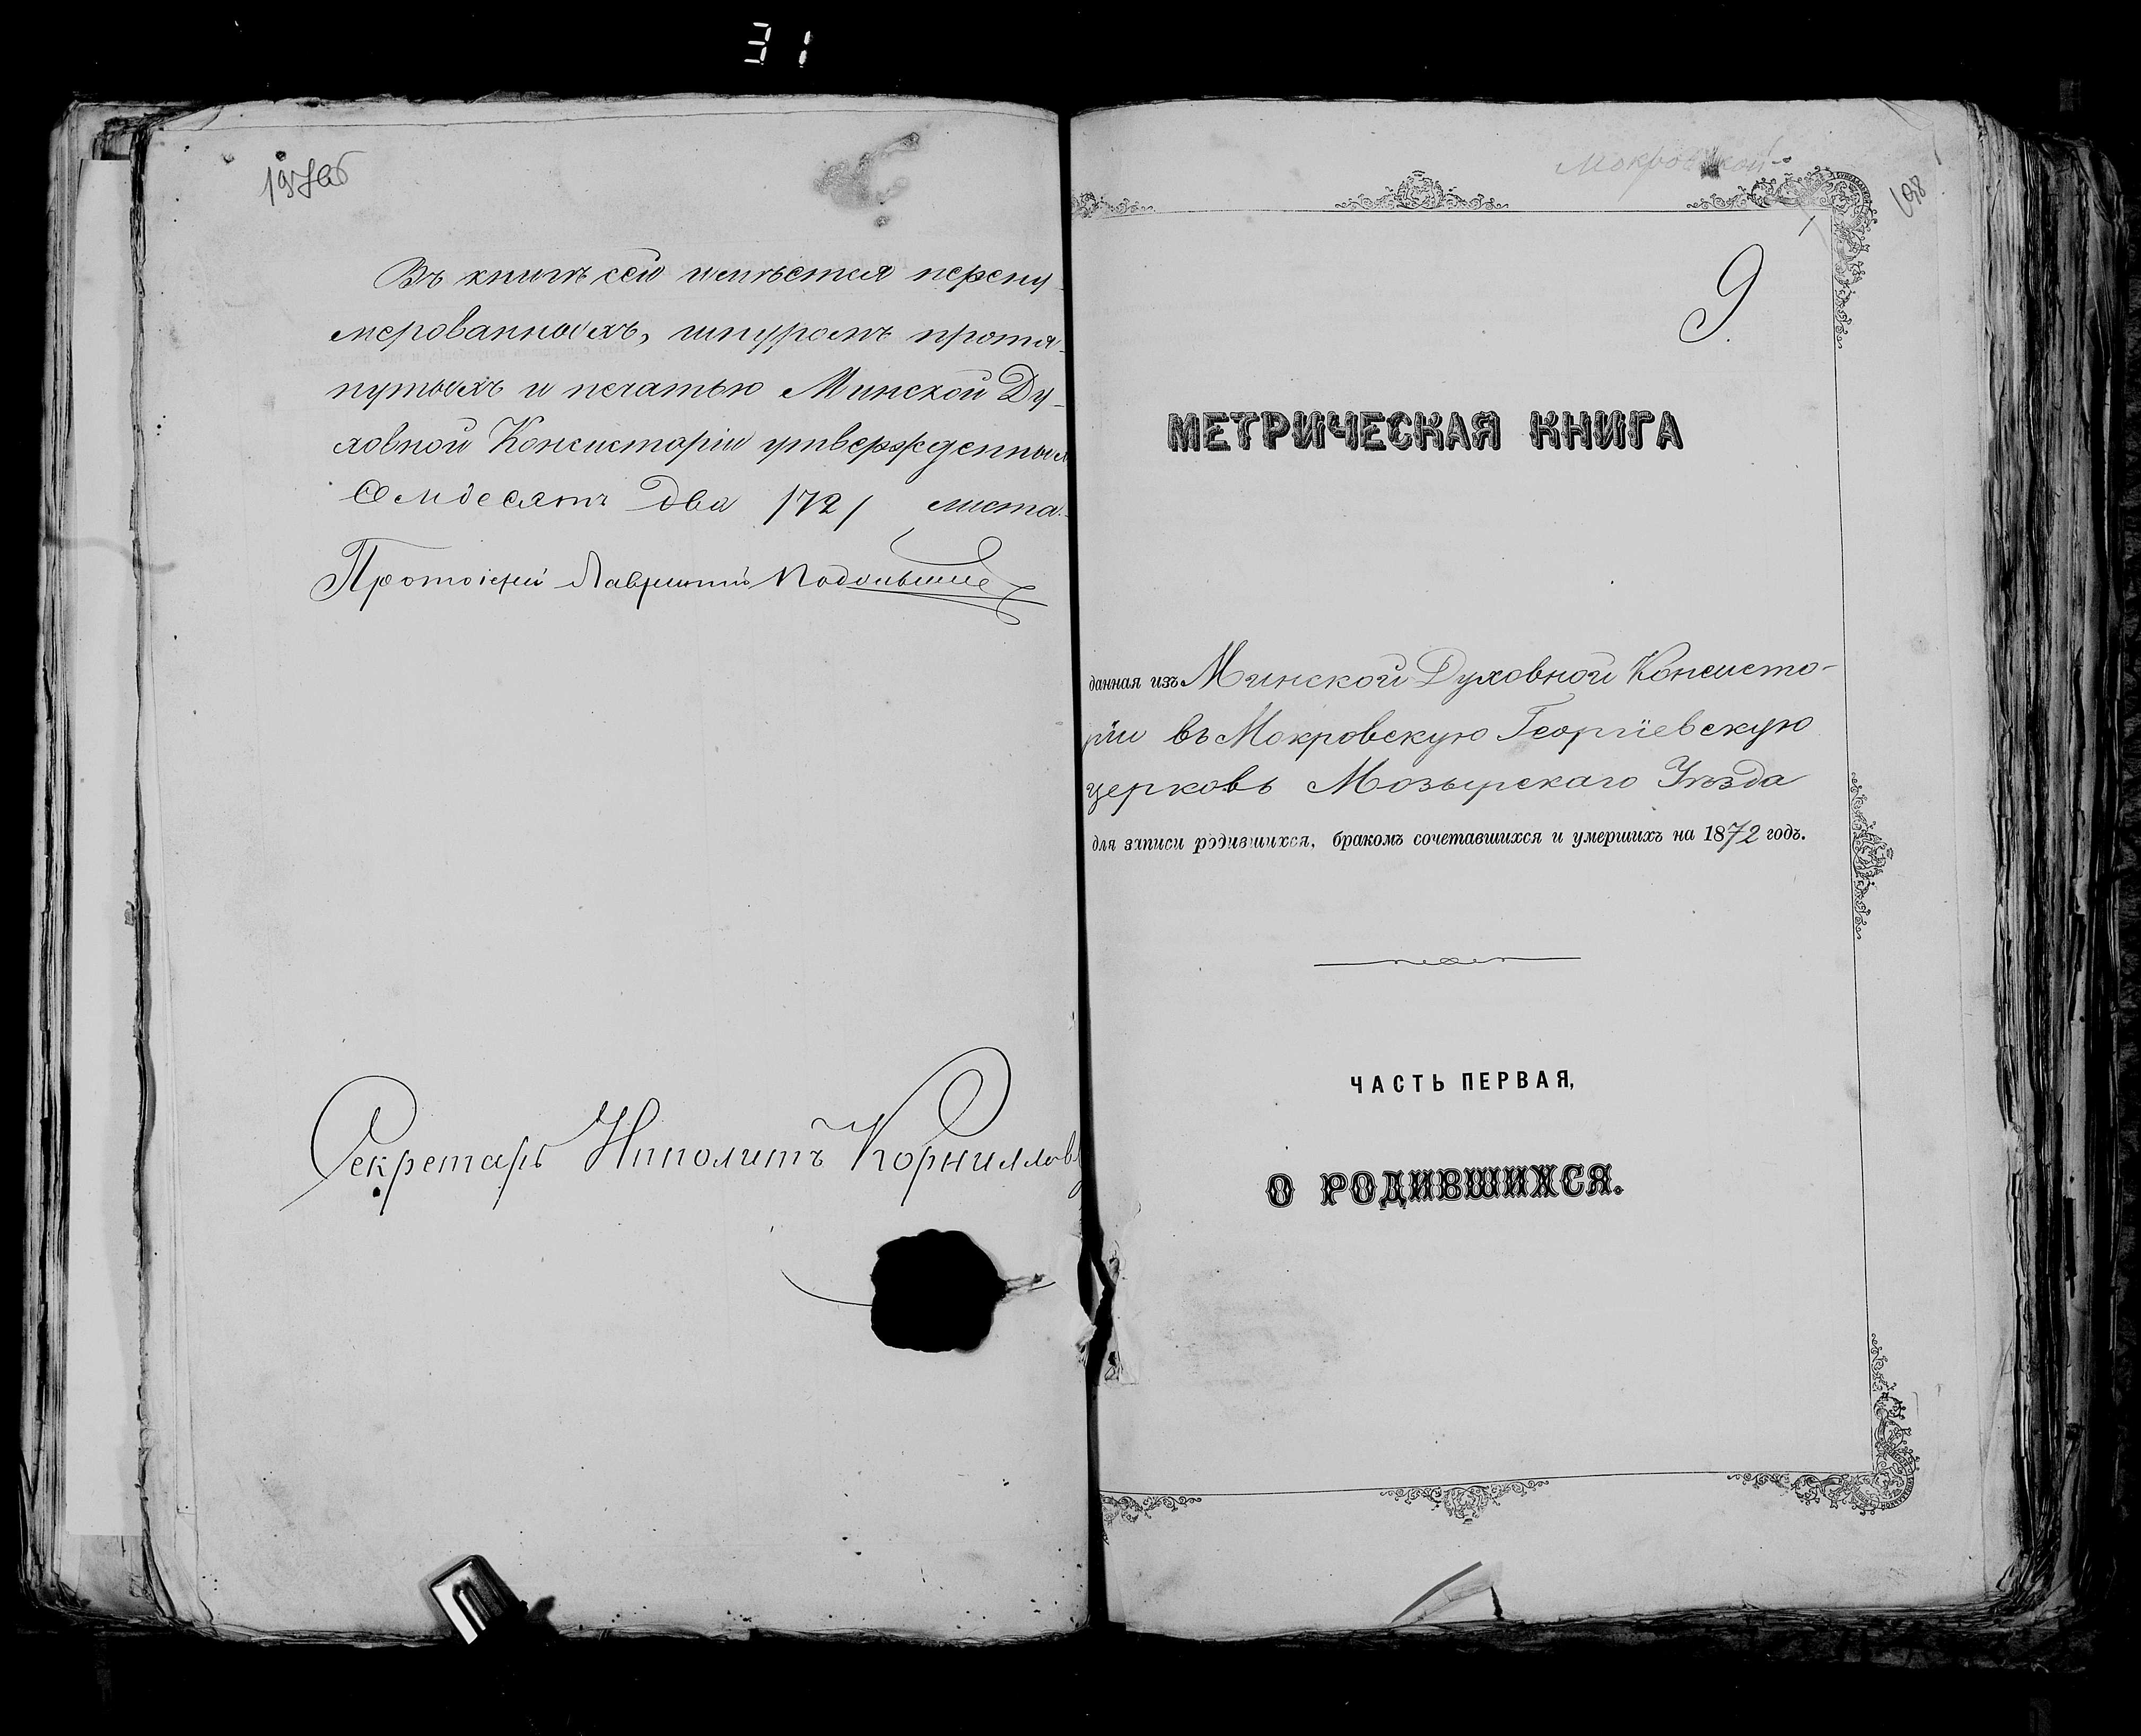 31
197об
Въ книгѣ сей имѣется перену-
мерованныхъ, шнуромъ протя-
нутыхъ и печатью Минской Ду-
ховной Консисторіи утвержденныхъ
Семдесятъ два /72/ листа.
Протоіерей Лаврентій
Секретарь Ипполитъ Корнилловъ
Мокровской
198
9.
МЕТРИЧЕСКАЯ КНИГА
данная изъ Минской Духовной Консисто-
ріи въ Мокровскую Георгіевскую
церковь Мозырскаго Уѣзда
для записи родившихся, бракомъ сочетавшихся и умершихъ на 1872 годъ.
ЧАСТЬ ПЕРВАЯ,
О РОДИВШИХСЯ.